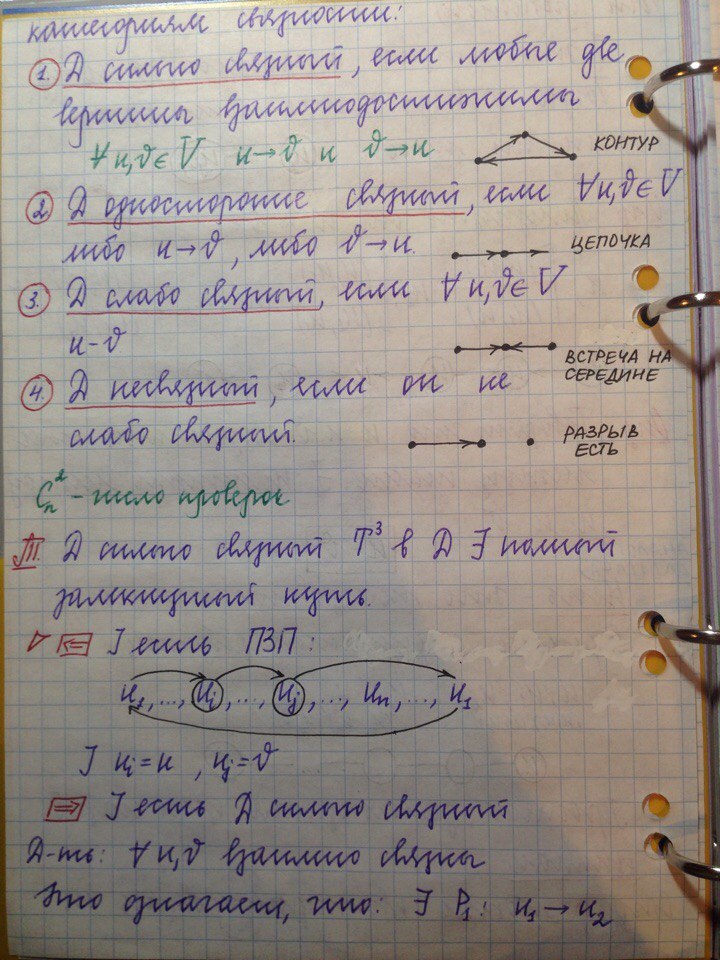 категориям связности:
1. D сильно связный, если любые две
вершины взаимодостижимы
∀u,v∈V u→v и v→u
КОНТУР
2. D односторонне связный, если ∀u,v∈V
либо u→v, либо v→u.
ЦЕПОЧКА
3. D слабо связный, если ∀u,v∈V
u-v
ВСТРЕЧА НА
СЕРЕДИНЕ
4. D несвязный, если он не
слабо связный.
РАЗРЫВ
ЕСТЬ
C_n^2 - число проверок
Т. D сильно связный T³ в D ∃ полный
замкнутый путь.
▷ ⇐ ] есть ПЗП:
u₁,...,u_i,...,u_j,...,u_n,...,u₁
] u_i=u, u_j=v
⇒ ] есть D сильно связный
D-ть: ∀u,v взаимно связны
Это означает, что: ∃ P₁: u₁→u₂